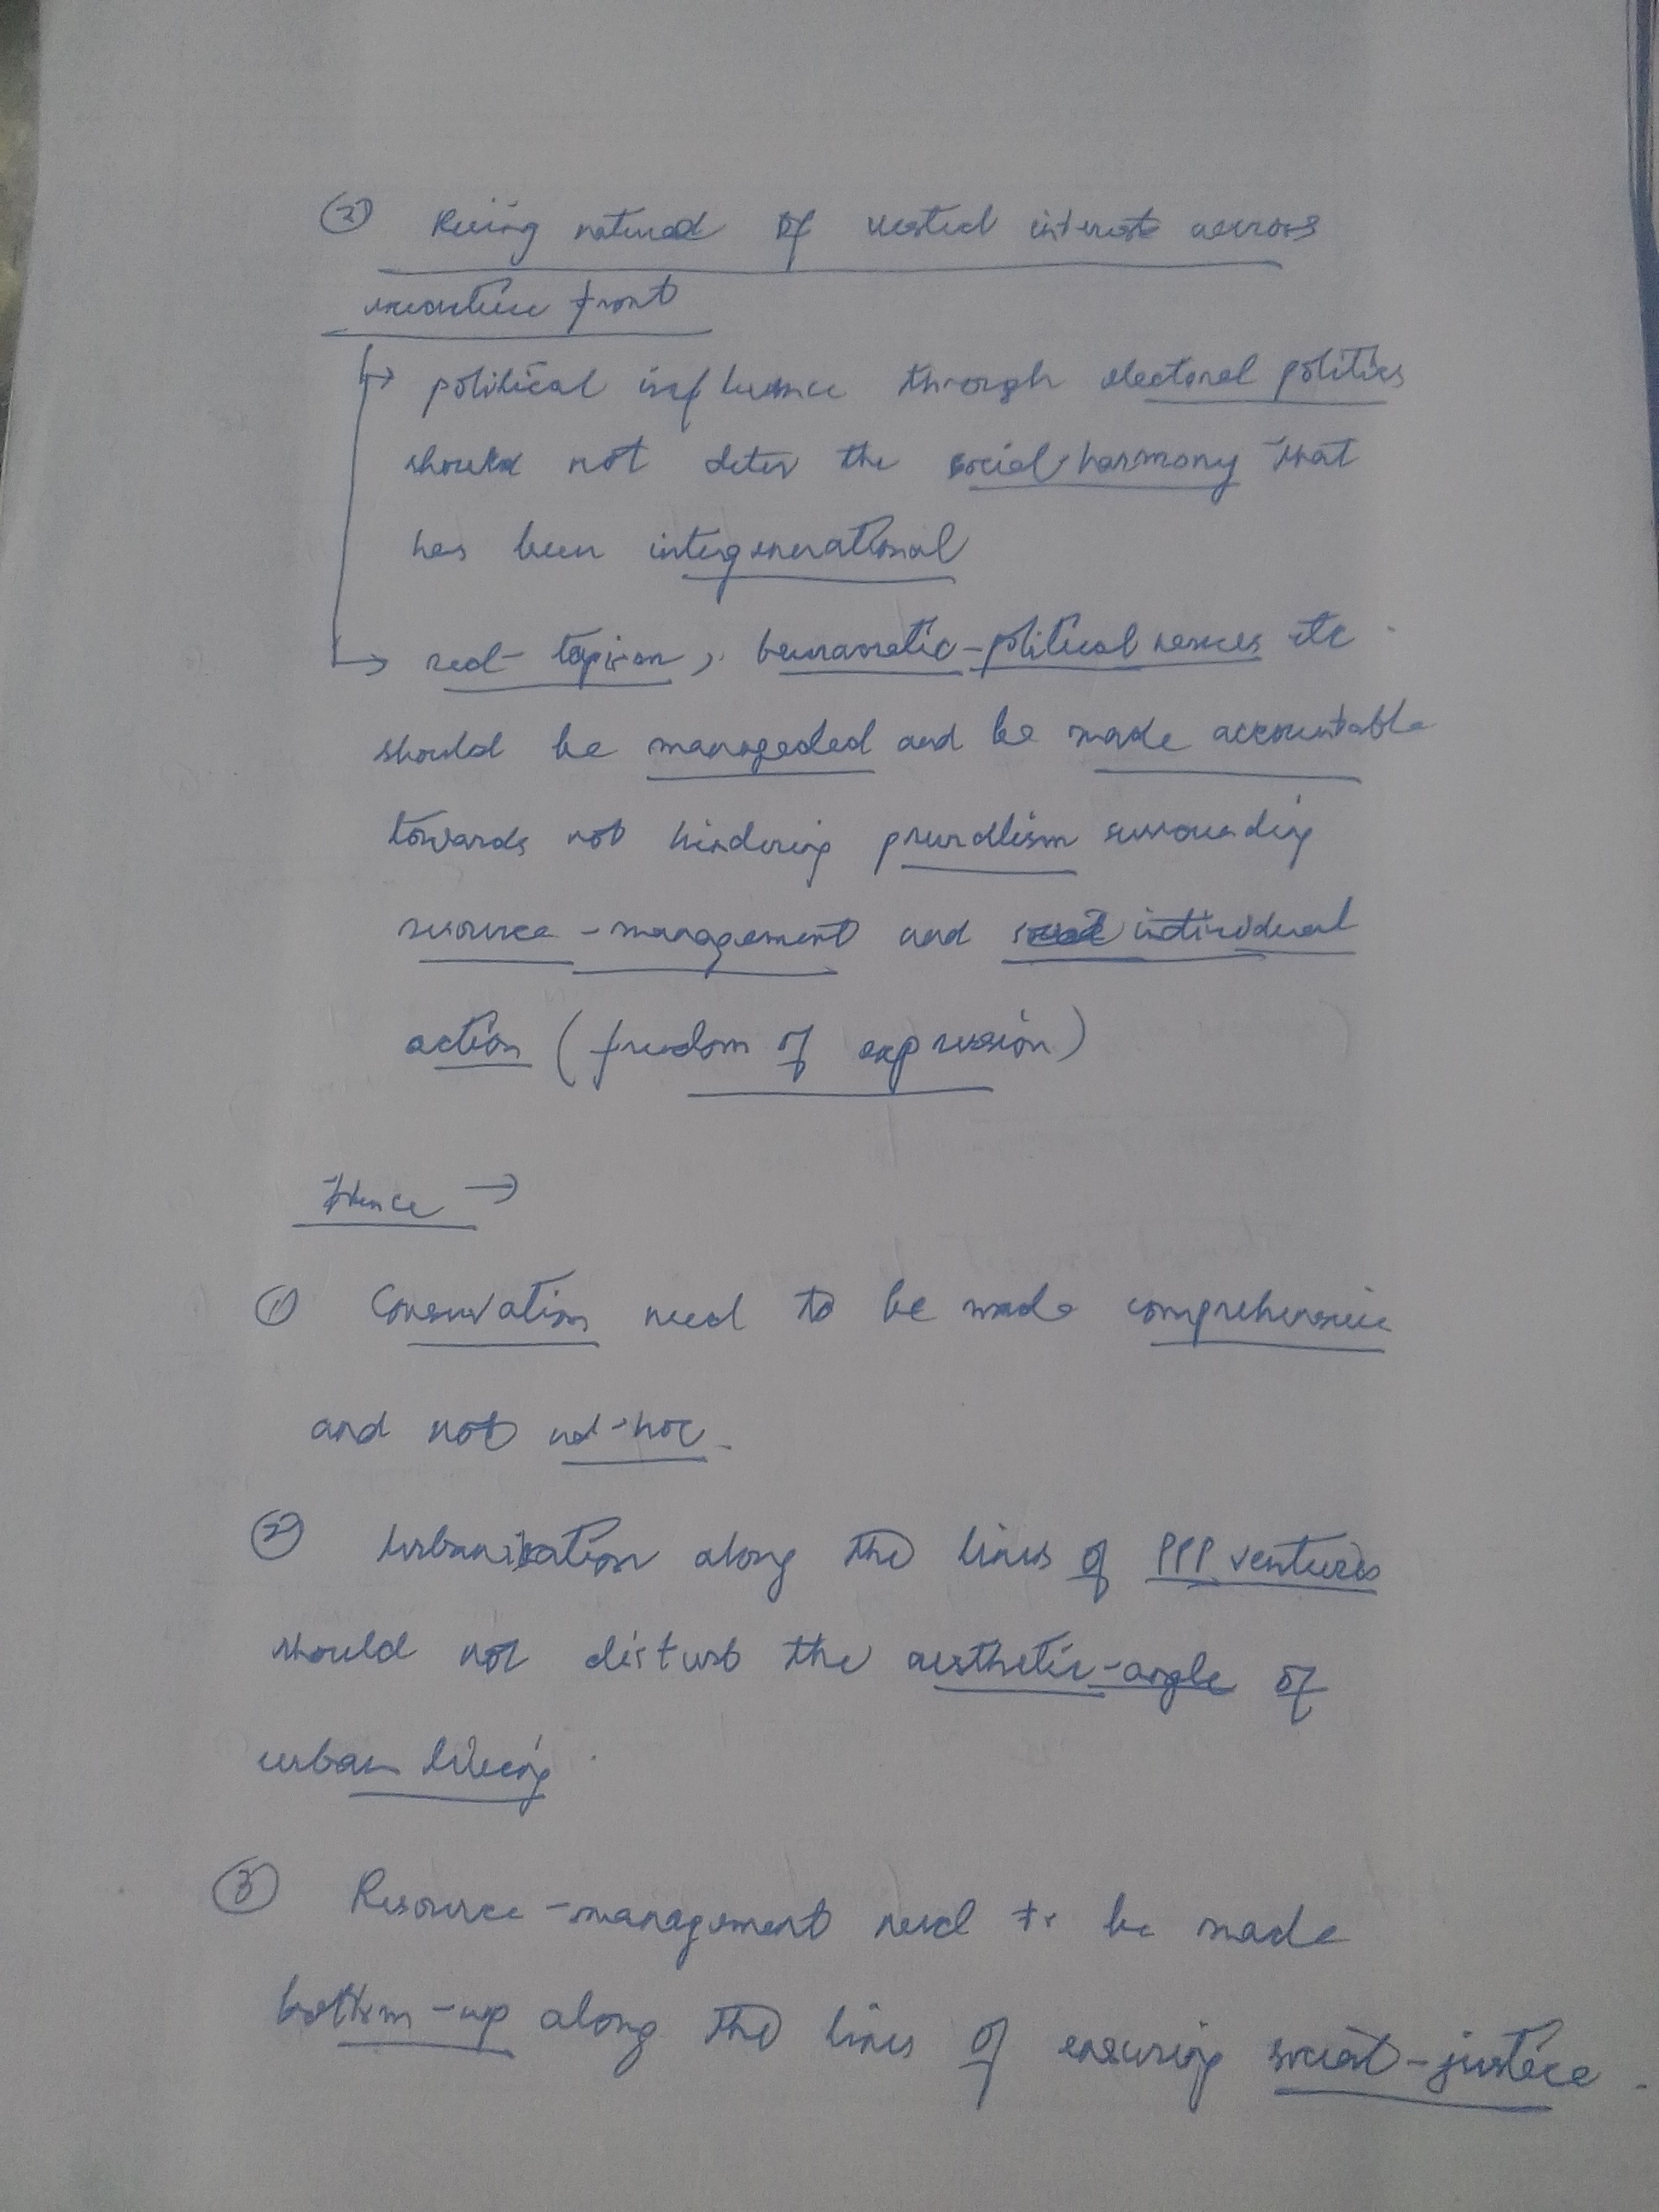 ② Rising natured of vested interests across
executive front
↳ political influence through electoral politics
should not deter the social harmony that
has been intergenerational
↳ red-tapism, beauracratic-political nexuses etc.
should be manageded and be made accountable
towards not hindering pruralism surrounding
resource-management and individual
action (freedom of expression)
Hence →
① Conservation need to be made comprehensive
and not ad-hoc.
② Urbanisation along the lines of PPP ventures
should not disturb the aesthetic-angle of
urban living.
③ Resource-management need to be made
bottom-up along the lines of ensuring social-justice.